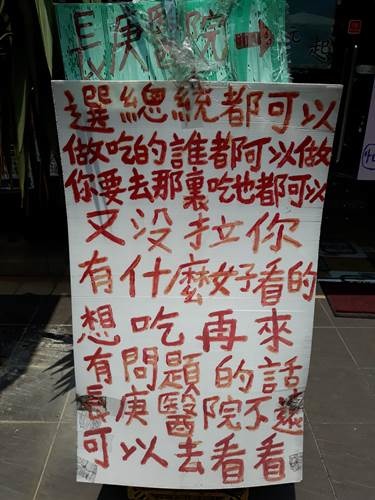 長庚醫院
選總統都可以
做吃的誰都可以做
你要去那裏吃也都可以
又沒拉你
有什麼好看的
想吃再來
有問題的話
長庚醫院不遠
可以去看看